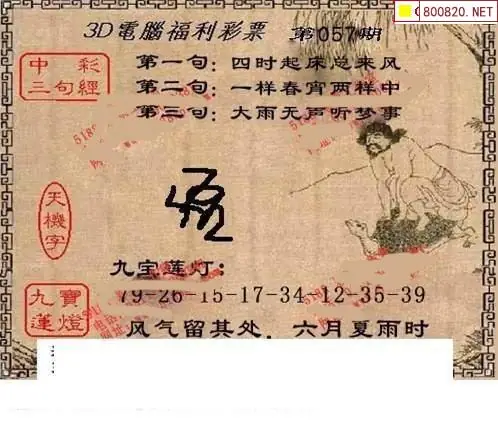 800820.NET
3D電腦福利彩票 第057期
中彩
三句經
第一句：四时起床总来风
第二句：一样春宵两样中
第三句：大雨无声听梦事
天機字
九宝莲灯：
九寶
蓮燈
79-26-15-17-34 12-35-39
风气留其处．六月夏雨时